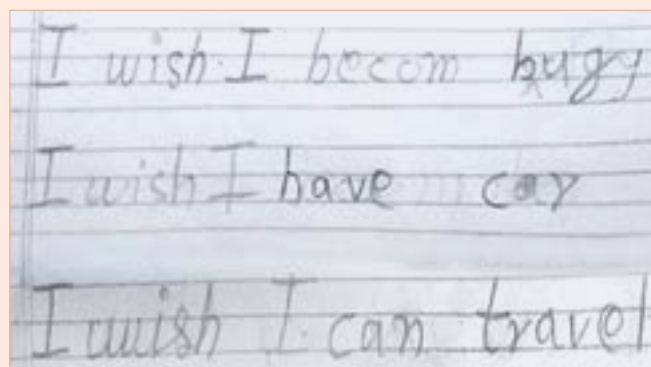 I wish I becom hugy
I wish I have car
I wish I can travel